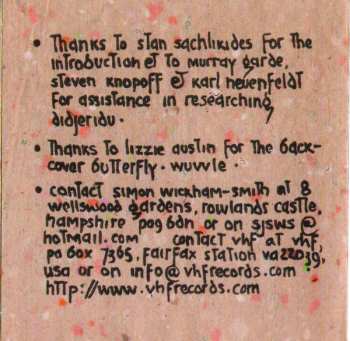 • Thanks to stan sachlikides for the
introduction & to murray garde,
steven knopoff & karl neuenfeldt
for assistance in researching
didjeridu.
• Thanks to lizzie austin for the back-
cover butterfly. wuvvle.
• contact simon wickham-smith at 8
wellswood gardens, rowlands castle,
hampshire po9 6dn or on sjsws@
hotmail.com contact vhf at vhf,
po box 7365, fairfax station va 22039,
usa or on info@vhfrecords.com
http://www.vhfrecords.com